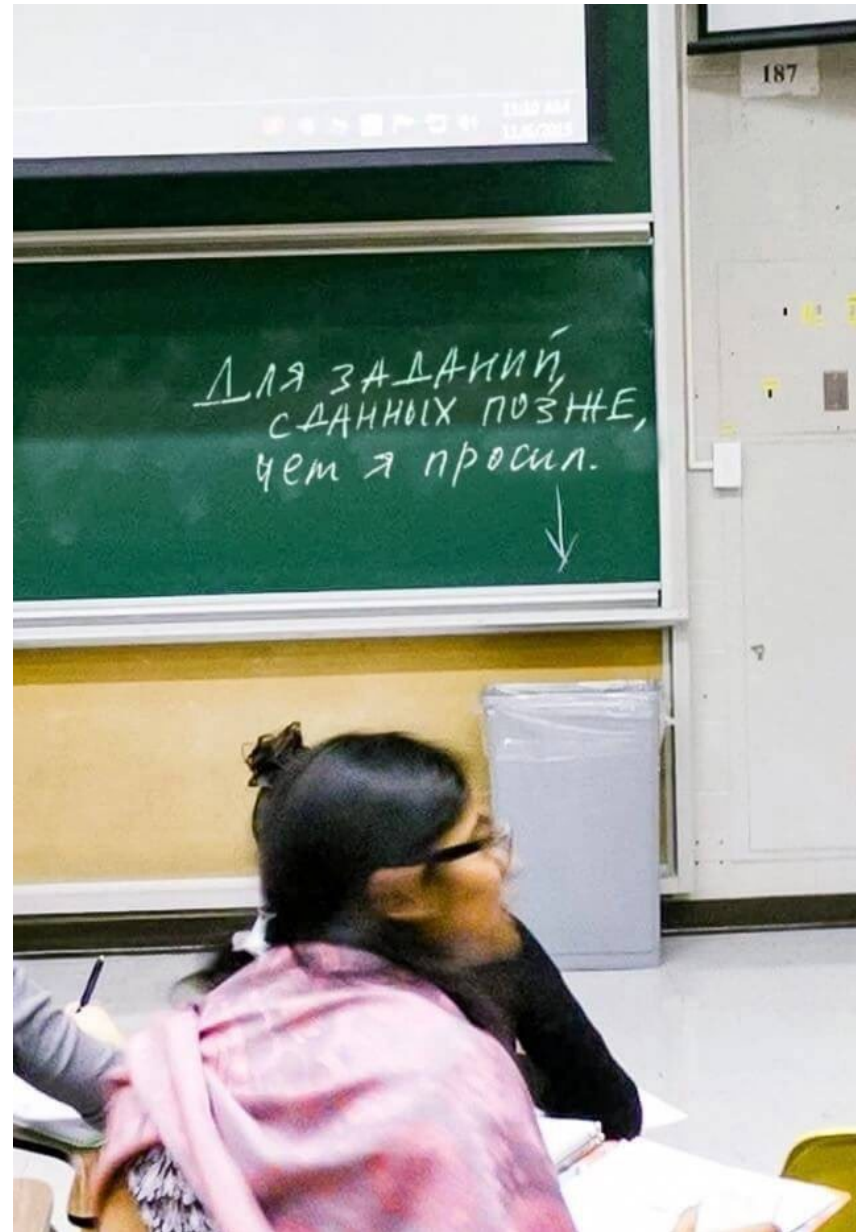 11/6/2015
187
Для заданий,
сданных позже,
чем я просил.